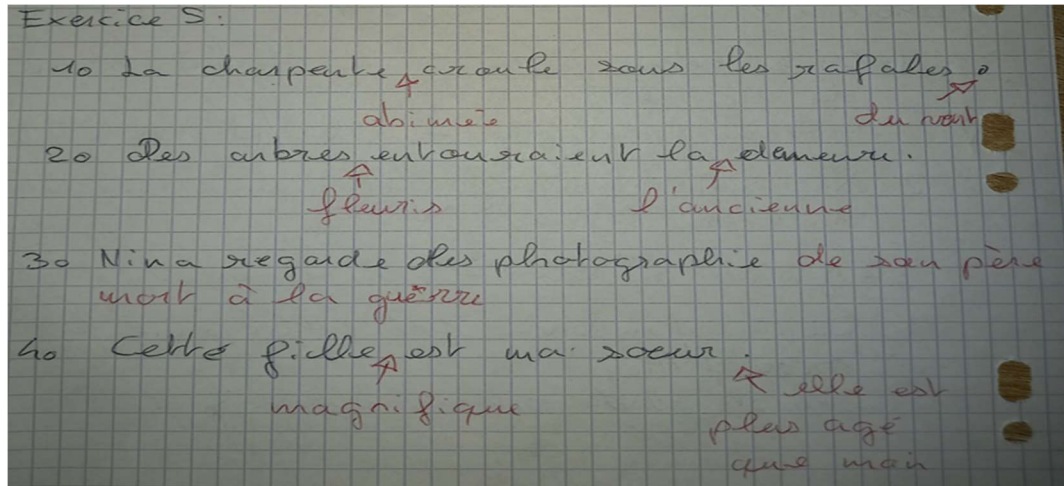 Exercice 5:
1o La charpente croule sous les rafales.
abimée du vent
2o Des arbres entouraient la demeure.
fleuris l'ancienne
3o Nina regarde des photographie de son père
mort à la guèrre
4o Cette fille est ma soeur.
magnifique elle est
plus agé
que moi